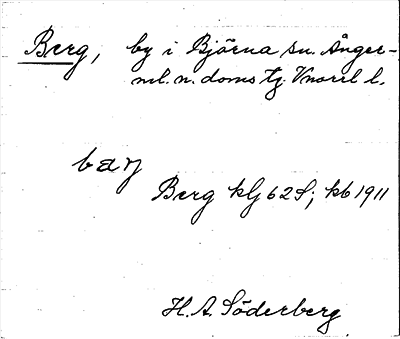 Berg, by i Björna sn. Ånger-
ml. n. doms tg. Vnorrl l.
bærj
Berg klj 62 S; kb 1911
H. A. Söderberg